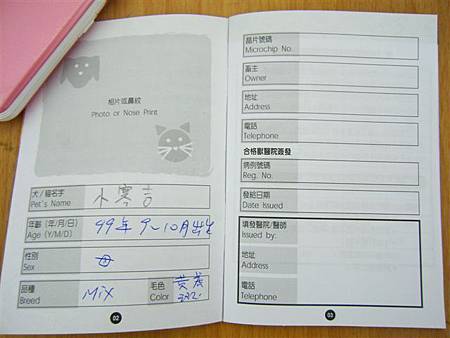 相片或鼻紋
Photo or Nose Print
犬/貓名字
Pet's Name
年齡(年/月/日) 99年 9~10月出生
Age (Y/M/D)
性別 母
Sex
品種 MiX 毛色 黃
Breed Color
02
晶片號碼
Microchip No.
畜主
Owner
地址
Address
電話
Telephone
合格獸醫院簽發
病例號碼
Reg. No.
發給日期
Date Issued
填發醫院/醫師
Issued by:
地址
Address
電話
Telephone
03